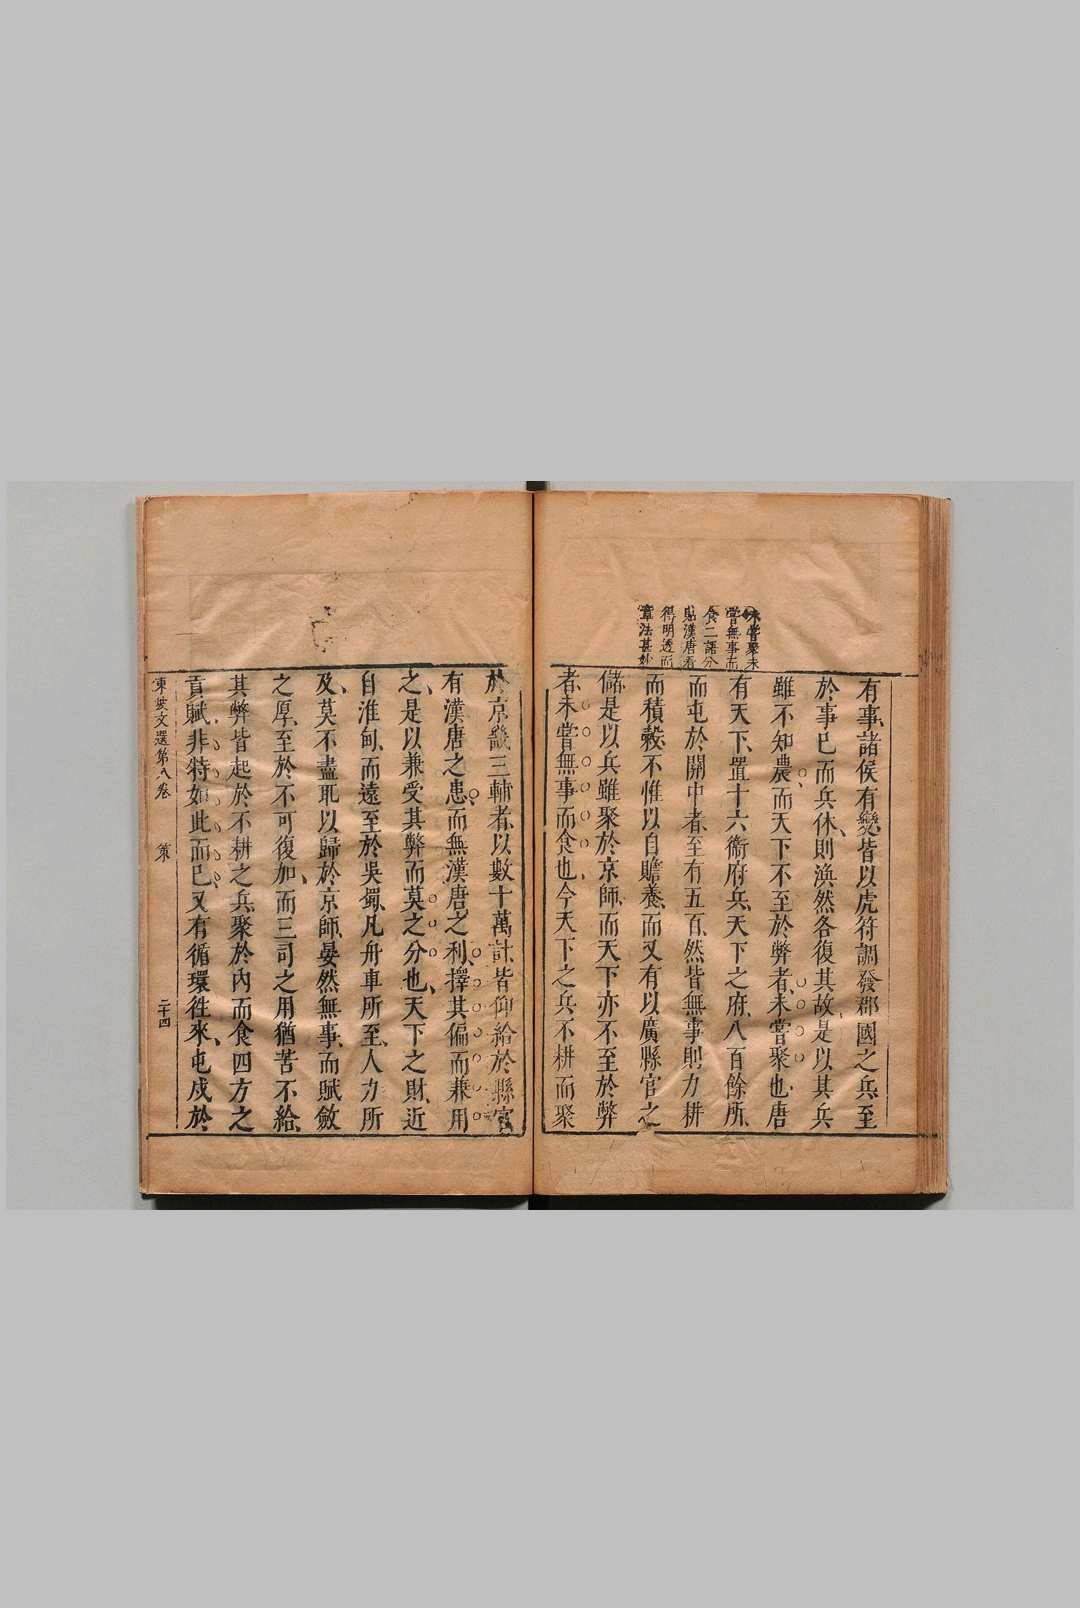 未嘗聚未
嘗無事而
食二語分
貼漢唐看
得明透而
章法甚妙
有事諸侯有變皆以虎符調發郡國之兵至
於事已而兵休則渙然各復其故是以其兵
雖不知農而天下不至於弊者未嘗聚也唐
有天下置十六衞府兵天下之府八百餘所
而屯於關中者至有五百然皆無事則力耕
而積穀不惟以自贍養而又有以廣縣官之
儲是以兵雖聚於京師而天下亦不至於弊
者未嘗無事而食也今天下之兵不耕而聚
於京畿三輔者以數十萬計皆仰給於縣官
有漢唐之患而無漢唐之利擇其偏而兼用
之是以兼受其弊而莫之分也天下之財近
自淮甸而遠至於吳蜀凡舟車所至人力所
及莫不盡取以歸於京師晏然無事而賦斂
之厚至於不可復加而三司之用猶苦不給
其弊皆起於不耕之兵聚於內而食四方之
貢賦非特如此而已又有循環徃來屯戍於
東坡文選第八卷 策 二十四